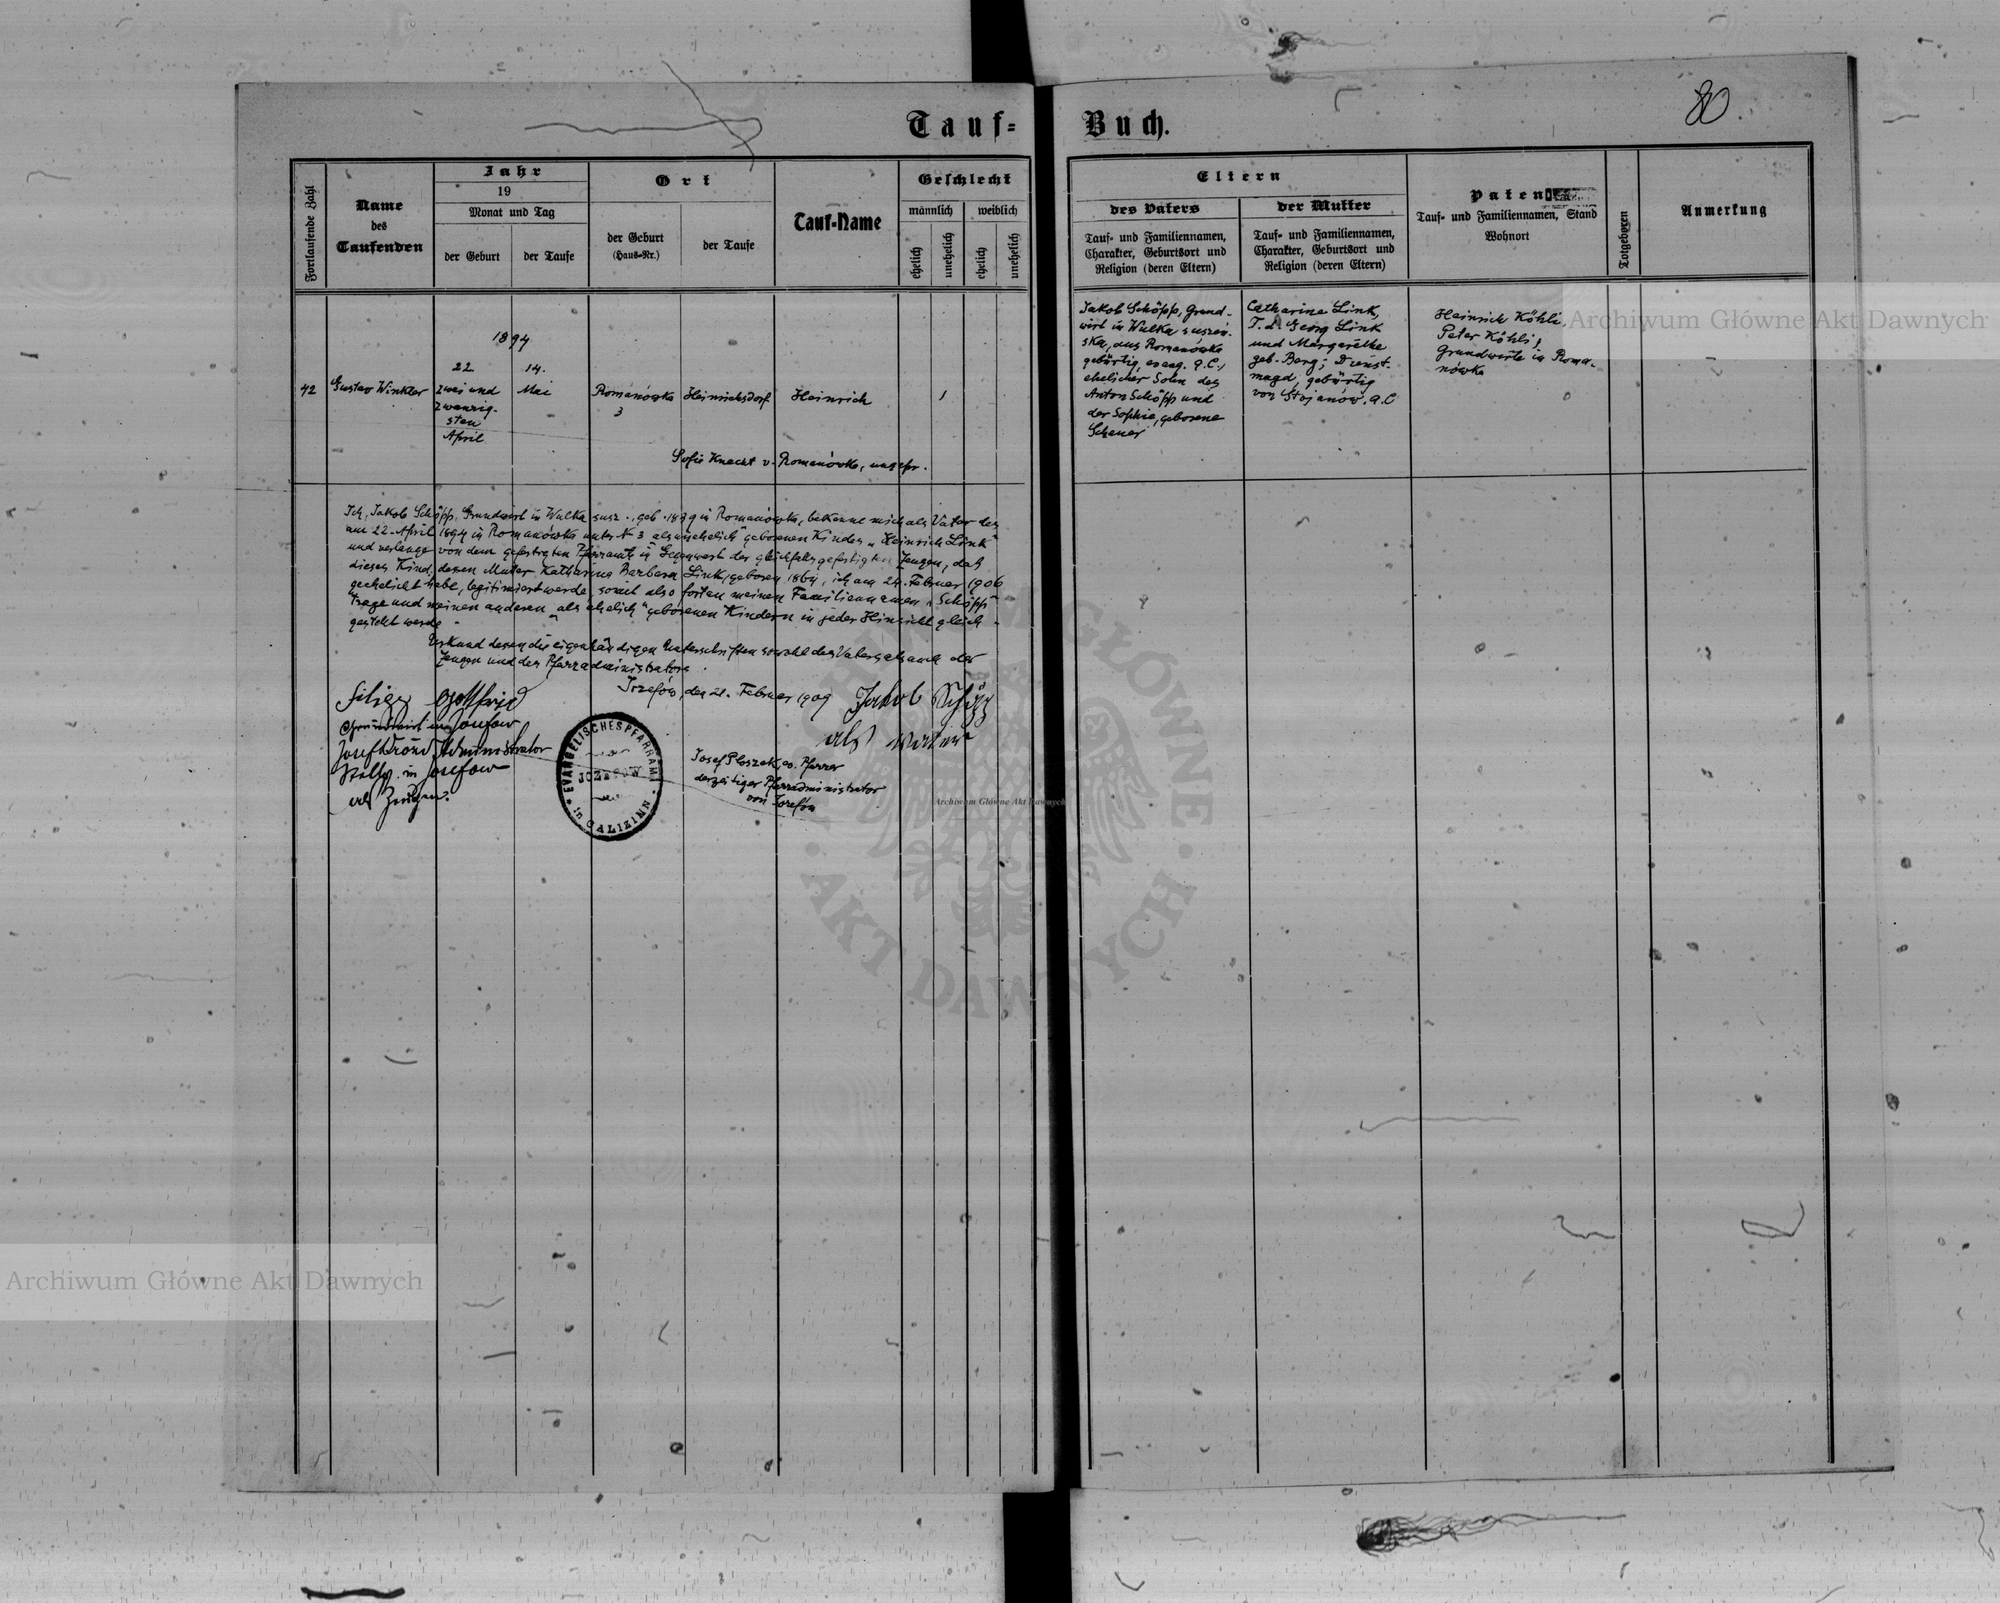 Tauf=
Buch.
80.
Fortlaufende Zahl
Name
des
Taufenden
Jahr
19
Monat und Tag
der Geburt
der Taufe
Ort
der Geburt
(Haus=Nr.)
der Taufe
Tauf=Name
Geschlecht
männlich
weiblich
ehelich
unehelich
ehelich
unehelich
Eltern
des Vaters
Tauf= und Familiennamen,
Charakter, Geburtsort und
Religion (deren Eltern)
der Mutter
Tauf= und Familiennamen,
Charakter, Geburtsort und
Religion (deren Eltern)
Paten
Tauf= und Familiennamen, Stand
Wohnort
Totgeboren
Anmerkung
42
Gustav Winkler
1894
22
zwei und
zwanzig-
sten
April
14.
Mai
Romanówka
3
Heinrichsdorf
Heinrich
1
Sofie Knecht v. Romanówka, ungepr.
Jakob Schöpp, Grund-
wirt in Wulka suszań-
ska, aus Romanówka
gebürtig, evang. A.C.,
ehelicher Sohn des
Anton Schöpp und
der Sophie, geborene
Scheuer
Catharina Link,
T. d. Georg Link
und Margarethe
geb. Berg; Dienst-
magd, gebürtig
von Stojanów. A.C
Heinrich Köhli,
Peter Köhli,
Grundwirte in Roma-
nówka
Ich, Jakob Schöpp, Grundwirt in Wulka susz., geb. in Romanówka, bekenne mich als Vater des
am 22. April 1894 in Romanówka unter N 3 als „unehelich" geborenen Kindes „Heinrich Link"
und verlange von dem gefertigten Pfarramte in Gegenwart der gleichfalls gefertigten Zeugen, daß
dieses Kind, dessen Mutter Katharina Barbara Link, geboren 1864, ich am 24. Februar 1906
geehelicht habe, legitimiert werde, somit also fortan meinen Familiennamen „Schöpp"
trage und meinen anderen „als ehelich" geborenen Kindern in jeder Hinsicht gleich-
gestellt werde.
Urkund dessen die eigenhändigen Unterschriften sowohl des Vaters als auch der
Zeugen und des Pfarradministrators.
Józefów, den 21. Februar 1909
Jakob Schöpp
als Vater
Filip Gottfried
Grundwirt in Josefow
Josef Administrator
in Josefow
als Zeugen.
EVANGELISCHES PFARRAMT
JÓZEFÓW
in GALIZIEN
Josef Ploszek, ev. Pfarrer
derzeitiger Pfarradministrator
von Józefów
Archiwum Główne Akt Dawnych
Archiwum Główne Akt Dawnych
Archiwum Główne Akt Dawnych
ARCHIWUM GŁÓWNE · AKT DAWNYCH ·